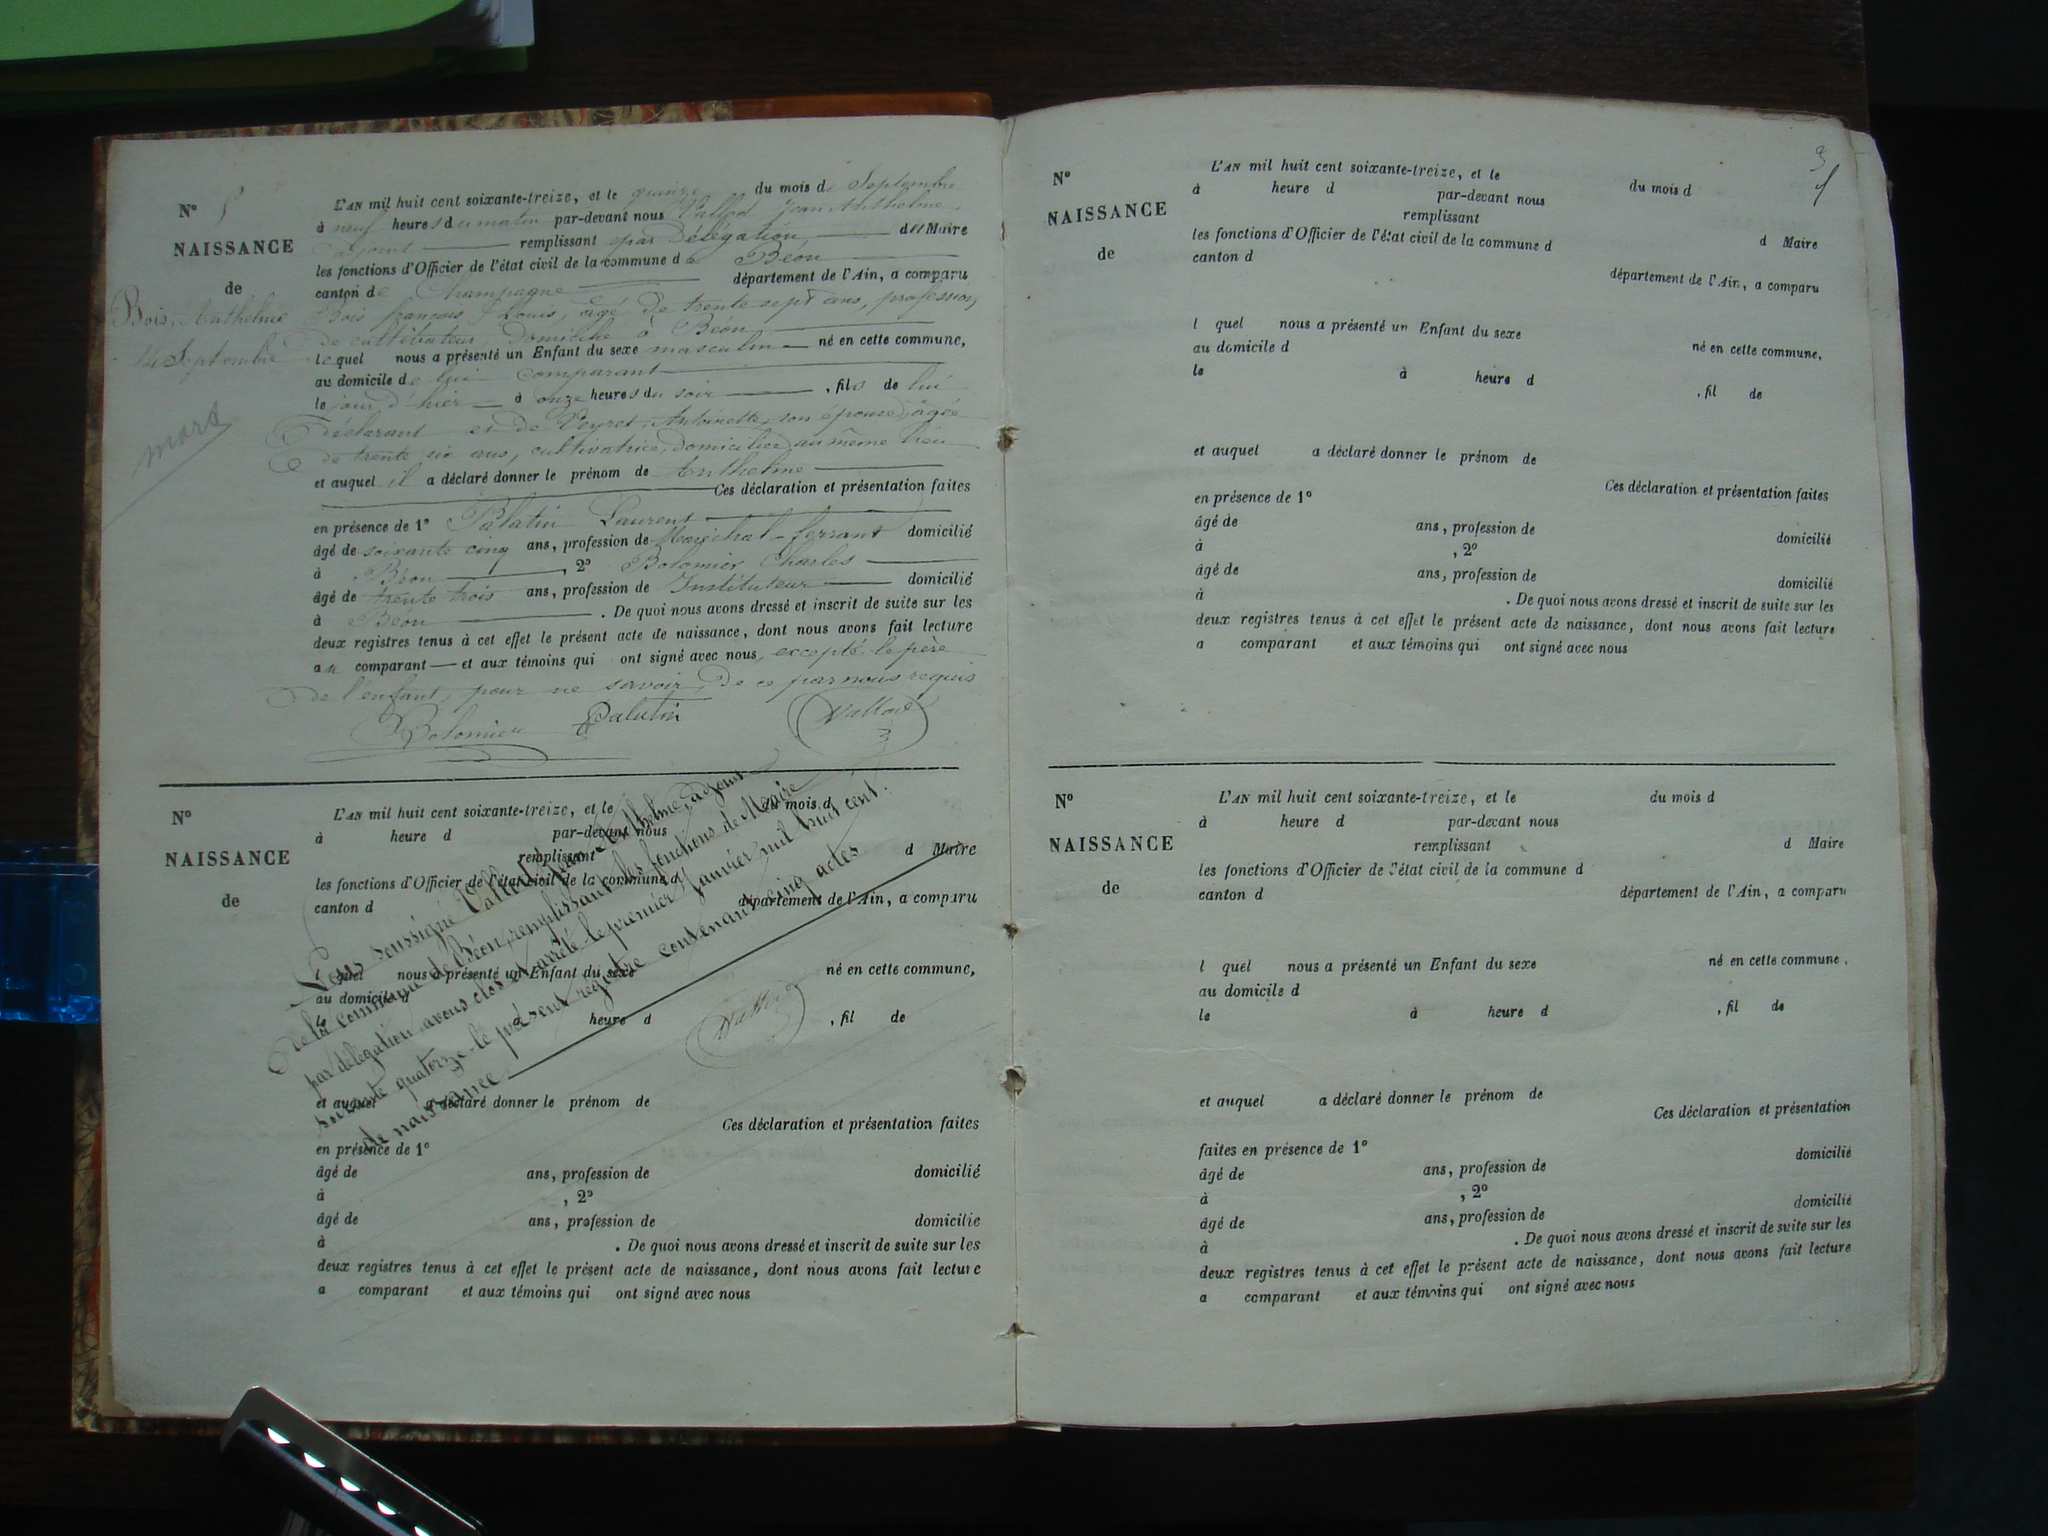 N° 5
NAISSANCE
de
Bois, Anthelme
14 Septembre
mort
L'AN mil huit cent soixante-treize, et le quinze du mois de Septembre
à neuf heures du matin par-devant nous Jean Anthelme,
adjoint remplissant par délégation, du Maire
les fonctions d'Officier de l'état civil de la commune de Béon
canton de Champagne département de l'Ain, a comparu
Bois françois Louis, âgé de trente sept ans, profession
de cultivateur, domicilié à Béon
lequel nous a présenté un Enfant du sexe masculin né en cette commune,
au domicile de lui comparant
le jour d'hier à onze heures du soir , fils de lui
déclarant et de Veyret Antoinette, son épouse, âgée
de trente six ans, cultivatrice, domiciliée au même lieu
et auquel il a déclaré donner le prénom de Anthelme
Ces déclaration et présentation faites
en présence de 1° Palatin Laurent
âgé de soixante cinq ans, profession de Maréchal-ferrant domicilié
à Béon , 2° Bolomier Charles
âgé de trente trois ans, profession de Instituteur domicilié
à Béon . De quoi nous avons dressé et inscrit de suite sur les
deux registres tenus à cet effet le présent acte de naissance, dont nous avons fait lecture
au comparant et aux témoins qui ont signé avec nous, excepté le père
de l'enfant, pour ne savoir, de ce par nous requis
Bolomier Palatin
N°
NAISSANCE
de
L'AN mil huit cent soixante-treize, et le du mois d
à heure d par-devant nous
remplissant d Maire
les fonctions d'Officier de l'état civil de la commune d
canton d département de l'Ain, a comparu
l quel nous a présenté un Enfant du sexe né en cette commune,
au domicile d
heure d , fil de
et auquel a déclaré donner le prénom de
Ces déclaration et présentation faites
en présence de 1°
âgé de ans, profession de domicilié
à , 2°
âgé de ans, profession de domicilié
à . De quoi nous avons dressé et inscrit de suite sur les
deux registres tenus à cet effet le présent acte de naissance, dont nous avons fait lecture
a comparant et aux témoins qui ont signé avec nous
Nous soussigné Jean Anthelme, adjoint
de la commune de Béon, remplissant les fonctions de Maire
par délégation avons clos et arrêté le premier janvier mil huit cent
soixante quatorze le présent registre contenant cinq actes
de naissance
3
N°
NAISSANCE
de
L'AN mil huit cent soixante-treize, et le du mois d
à heure d par-devant nous
remplissant d Maire
les fonctions d'Officier de l'état civil de la commune d
canton d département de l'Ain, a comparu
l quel nous a présenté un Enfant du sexe né en cette commune,
au domicile d
le à heure d , fil de
et auquel a déclaré donner le prénom de
Ces déclaration et présentation faites
en présence de 1°
âgé de ans, profession de domicilié
à , 2°
âgé de ans, profession de domicilié
à . De quoi nous avons dressé et inscrit de suite sur les
deux registres tenus à cet effet le présent acte de naissance, dont nous avons fait lecture
a comparant et aux témoins qui ont signé avec nous
N°
NAISSANCE
de
L'AN mil huit cent soixante-treize, et le du mois d
à heure d par-devant nous
remplissant d Maire
les fonctions d'Officier de l'état civil de la commune d
canton d département de l'Ain, a comparu
l quel nous a présenté un Enfant du sexe né en cette commune,
au domicile d
le à heure d , fil de
et auquel a déclaré donner le prénom de
Ces déclaration et présentation
faites en présence de 1° domicilié
âgé de ans, profession de
à , 2° domicilié
âgé de ans, profession de
à . De quoi nous avons dressé et inscrit de suite sur les
deux registres tenus à cet effet le présent acte de naissance, dont nous avons fait lecture
a comparant et aux témoins qui ont signé avec nous